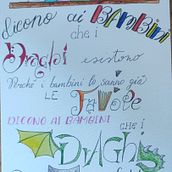 dicono ai BAMBINI
che i
Draghi esistono
Perché i bambini lo sanno già
LE FAVOLE
DICONO AI BAMBINI
CHE i
DRAGHi